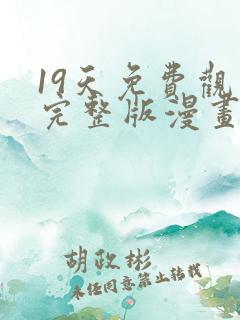 19天免費觀
完整版漫畫
胡政彬
未经同意禁止转载